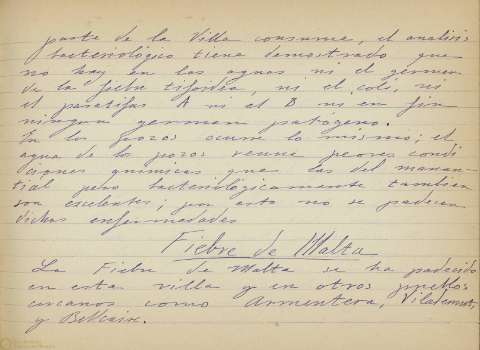 parte de la Villa consume, el analisis
bacteriológico tiene demostrado que
no hay en las aguas ni el germen
de la fiebre tifoídea, ni el coli, ni
el paratifus A ni el B ni en fin
ningun germen patógeno.
En los pozos ocurre lo mismo; el
agua de los pozos reune peores condi
ciones quimicas que las del manan-
tial pero bacteriológicamente tambien
son excelentes; por esto no se padecen
dichas enfermedades
Fiebre de Malta
La Fiebre de Malta se ha padecido
en esta villa y en otros pueblos
cercanos como Armentera, Viladamat,
y Bellcaire.